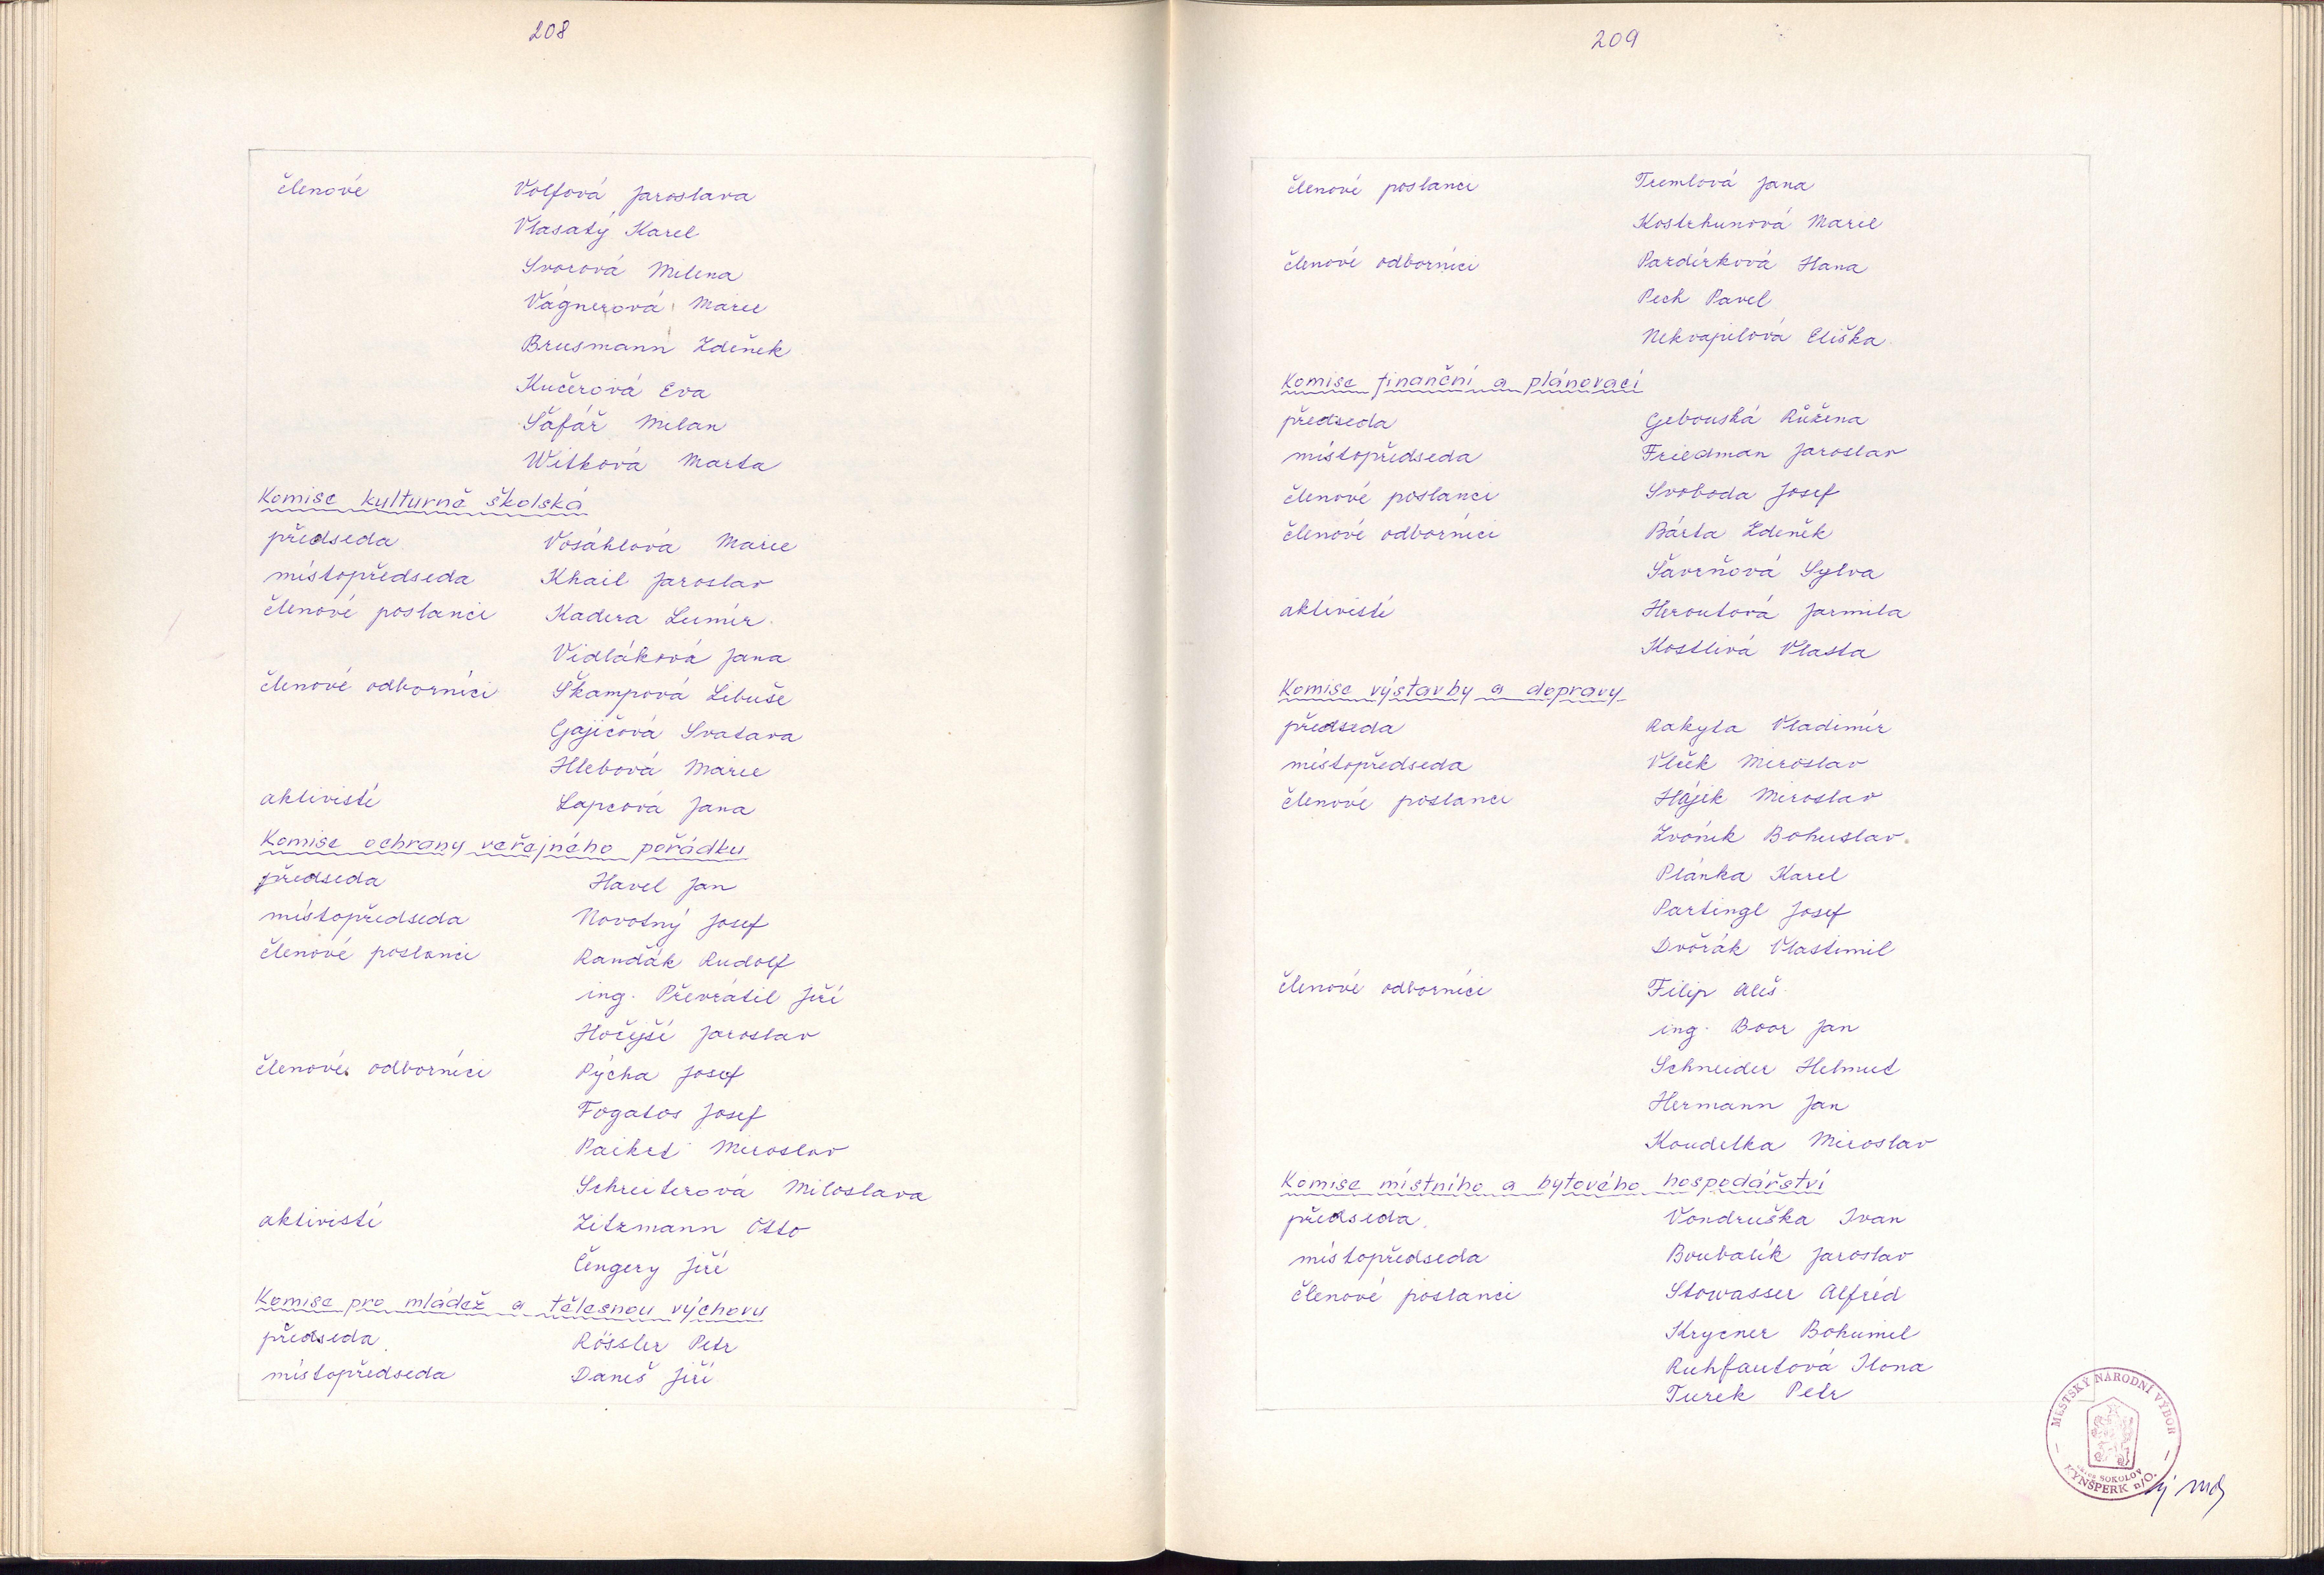 208
členové Volfová Jaroslava
Vlasatý Karel
Svorová Milena
Vágnerová Marie
Brusmann Zdeněk
Kučerová Eva
Šafář Milan
Witková Marta
Komise kulturně školská
předseda Vosáhlová Marie
místopředseda Khail Jaroslav
členové poslanci Kadera Lumír
Vidláková Jana
členové odborníci Škampová Libuše
Gajičová Svatava
Hlebová Marie
aktivisté Lapcová Jana
Komise ochrany veřejného pořádku
předseda Havel Jan
místopředseda Novotný Josef
členové poslanci Randák Rudolf
ing. Převrátil Jiří
Hořejší Jaroslav
členové odborníci Pýcha Josef
Fogatos Josef
Paikrt Miroslav
Schreiterová Miloslava
aktivisté Zitzmann Otto
Čengery Jiří
Komise pro mládež a tělesnou výchovu
předseda Rössler Petr
místopředseda Daneš Jiří
209
členové poslanci Tumlová Jana
Kostrhunová Marie
členové odborníci Pardírková Hana
Pech Pavel
Nekvapilová Eliška
Komise finanční a plánovací
předseda Gebouská Růžena
místopředseda Friedman Jaroslav
členové poslanci Svoboda Josef
členové odborníci Bárta Zdeněk
Šavrňová Sylva
aktivisté Heroutová Jarmila
Kostlivá Vlasta
Komise výstavby a dopravy
předseda Rakyta Vladimír
místopředseda Vlček Miroslav
členové poslanci Hájek Miroslav
Zvoník Bohuslav
Plánka Karel
Partingl Josef
Dvořák Vlastimil
členové odborníci Filip Aleš
ing. Boor Jan
Schneider Helmut
Hermann Jan
Koudelka Miroslav
Komise místního a bytového hospodářství
předseda Vondruška Ivan
místopředseda Boubalík Jaroslav
členové poslanci Stowasser Alfréd
Krycner Bohumil
Ruhfautová Ilona
Turek Petr
MĚSTSKÝ NÁRODNÍ VÝBOR
SOKOLOV
KYNŠPERK n/O.